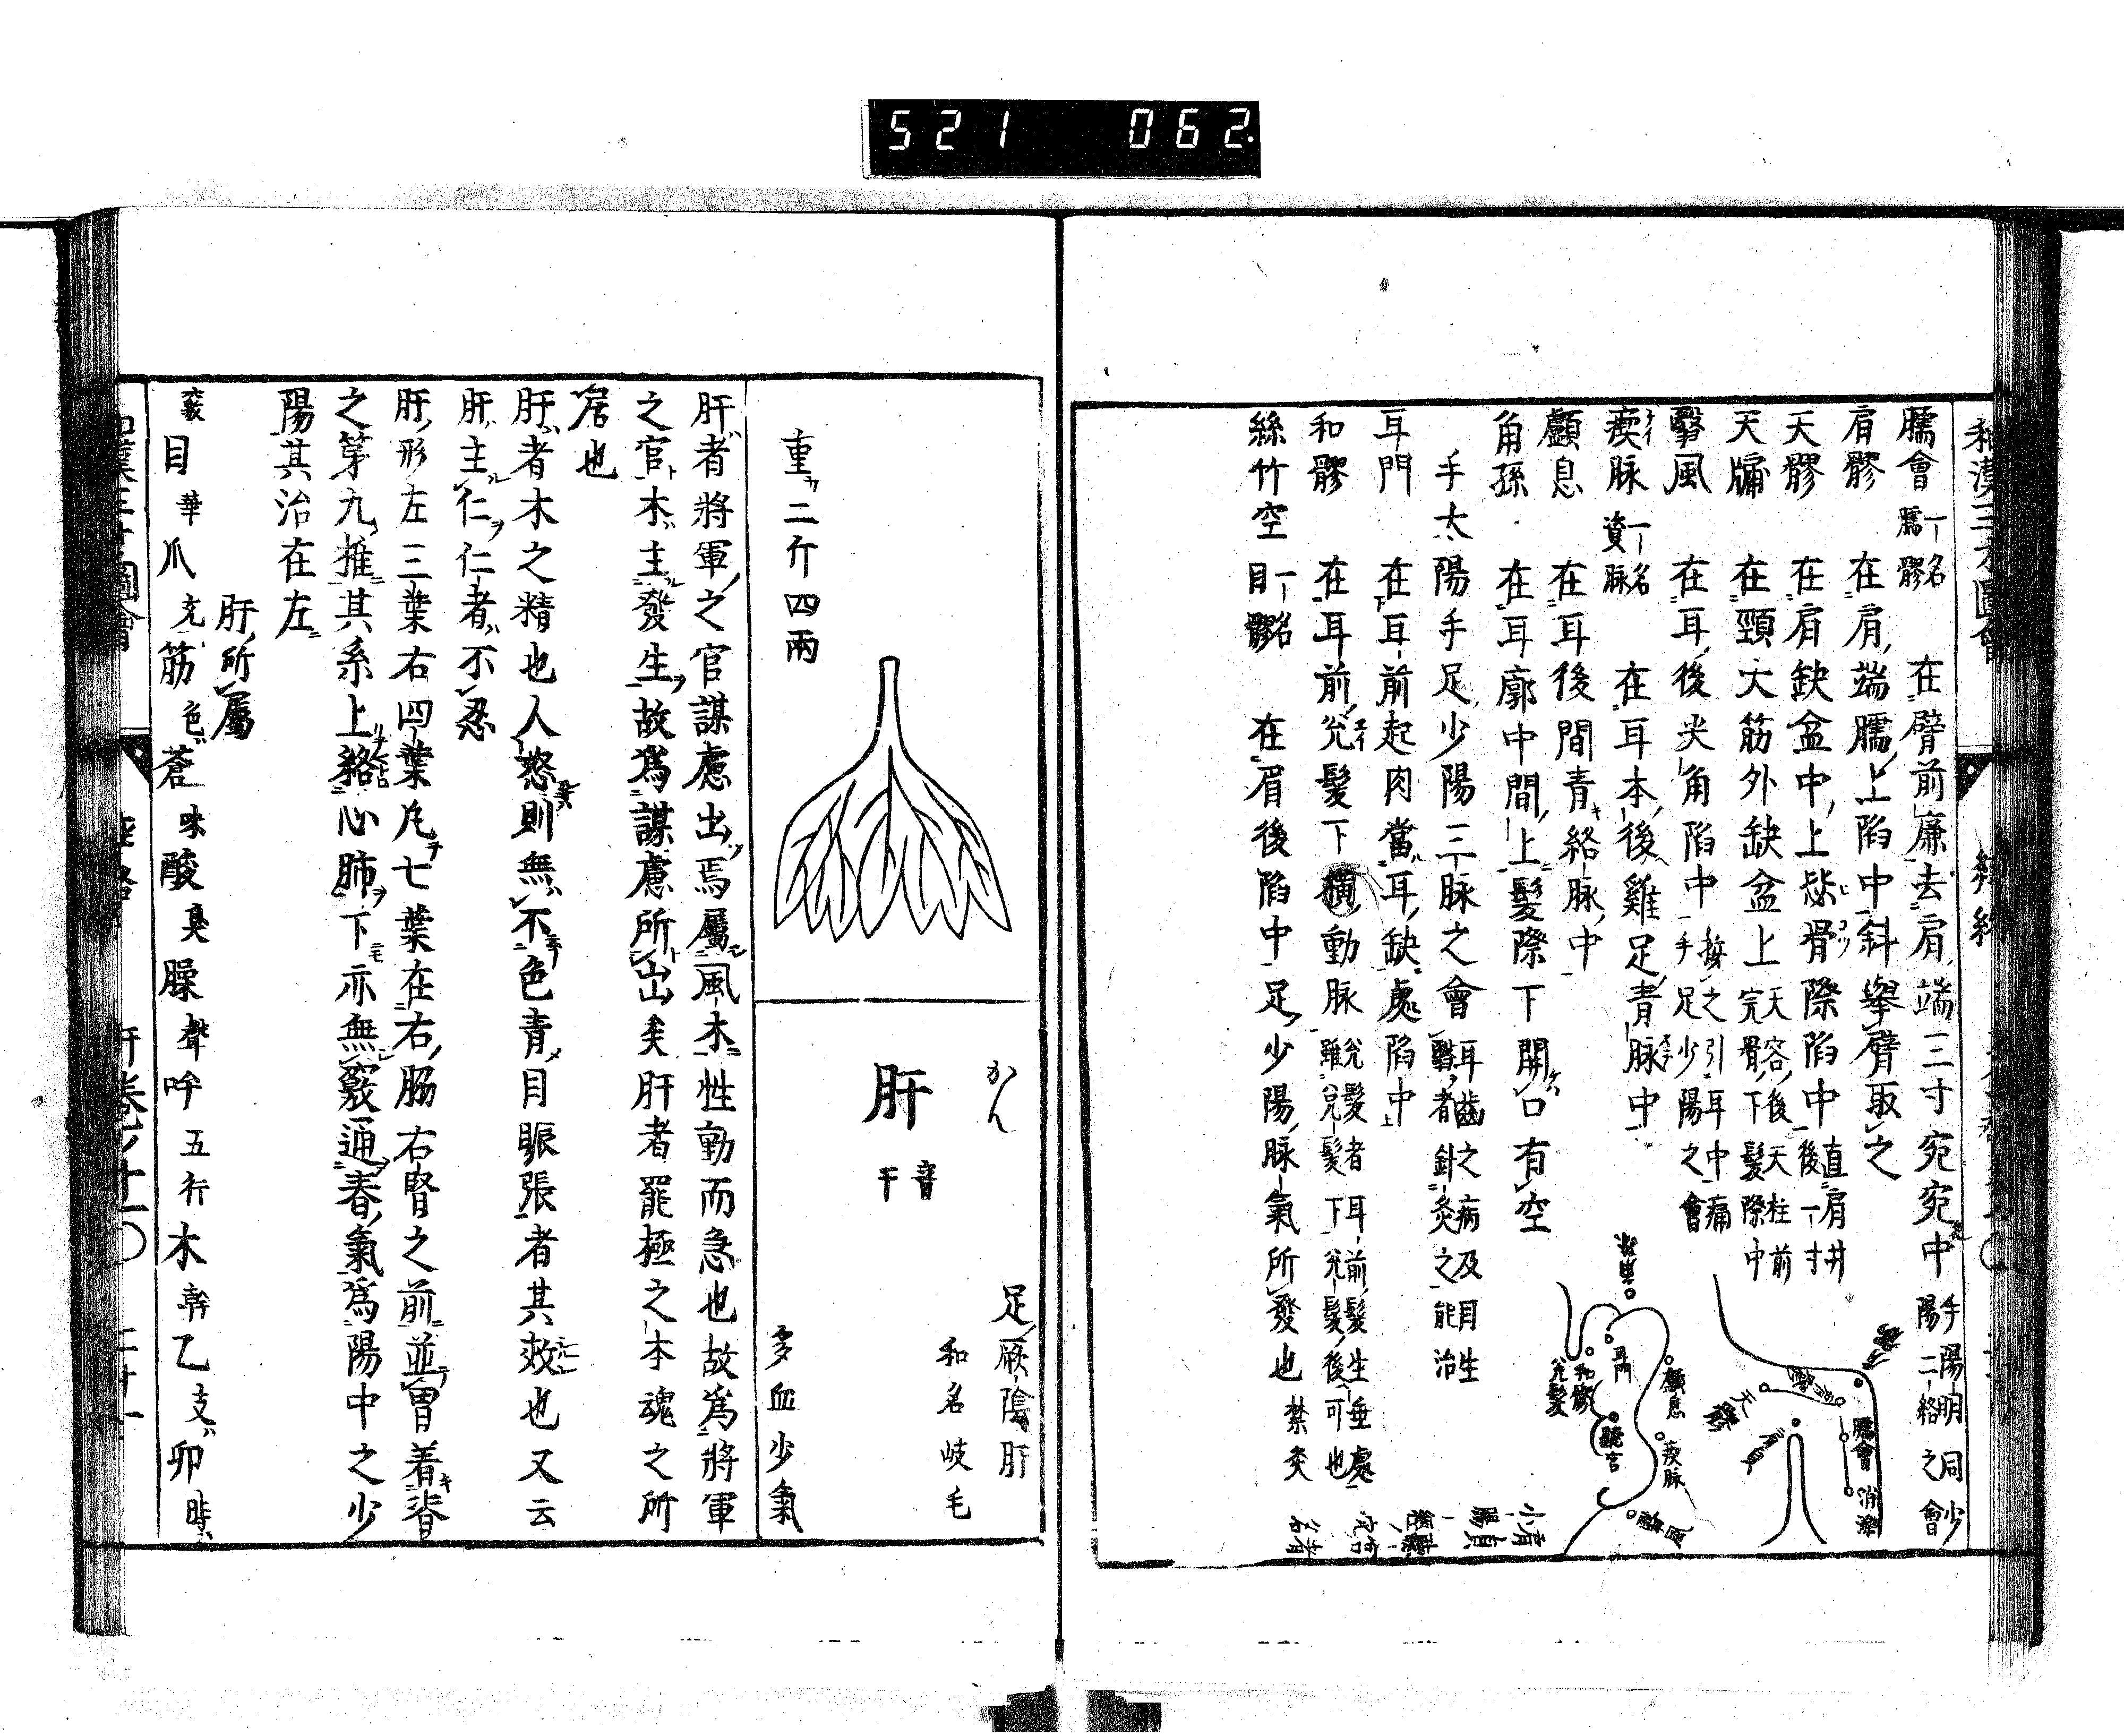 521 062
和漢三才圖會
臑會 一名臑髎 在臂前廉去肩端三寸宛宛中 手陽明同少陽二絡之會
肩髎 在肩端臑上陷中斜舉臂取之
天髎 在肩缺盆中上毖骨際陷中 直肩井後一寸
天牖 在頸大筋外缺盆上 天容後天柱前完骨下髮際中
翳風 在耳後尖角陷中 按之引耳中痛手足少陽之會
瘈脉 一名資脉 在耳本後雞足青脉中
顱息 在耳後間青絡脉中
角孫 在耳廓中間上髮際下開口有空
手太陽手足少陽三脉之會 耳齒之病及目生翳者針灸之能治
耳門 在耳前起肉當耳缺處陷中
和髎 在耳前兊髮下橫動脉 兊髮者耳前髮生垂處雖兊髮下兊髮後可也
絲竹空 一名目髎 在眉後陷中足少陽脉氣所發也 禁灸
耳門
和髎
兊髮
顱息
瘈脉
聽宮
翳風
臑會
消濼
重二斤四兩
かん
肝
音干
足厥陰肝
和名岐毛
多血少氣
肝者將軍之官謀慮出焉屬風木性動而急也故爲將軍
之官木主發生故爲謀慮所出矣肝者罷極之本魂之所
居也
肝者木之精也人怒則無不色青目眡張者其效也又云
肝主仁仁者不忍
肝形左三葉右四葉凡七葉在右脇右腎之前並胃着脊
之第九推其系上絡心肺下亦無竅通春氣爲陽中之少
陽其治在左
肝所屬
竅目 華爪 充筋 色蒼 味酸 臭臊 聲呼 五行木 幹乙 支卯 時